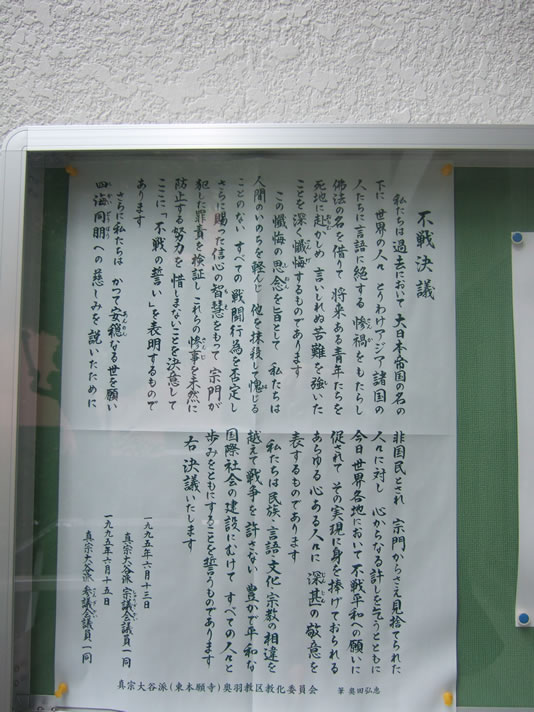 不戦決議
私たちは過去において 大日本帝国の名の
下に 世界の人々 とりわけアジア諸国の
人たちに言語に絶する 惨禍をもたらし
佛法の名を借りて 将来ある青年たちを
死地に赴かしめ 言いしれぬ苦難を強いた
ことを深く懺悔するものであります
この懺悔の思念を旨として 私たちは
人間のいのちを軽んじ 他を抹殺して愧じる
ことのない すべての戦闘行為を否定し
さらに賜った信心の智慧をもって 宗門が
犯した罪責を検証し これらの惨事を未然に
防止する努力を惜しまないことを決意して
ここに「不戦の誓い」を表明するもので
あります
さらに私たちは かつて安穏なる世を願い
四海同朋への慈しみを説いたために
非国民とされ 宗門からさえ見捨てられた
人々に対し 心からなる許しを乞うとともに
今日世界各地において 不戦平和への願いに
促されて その実現に身を捧げておられる
あらゆる心ある人々に 深甚の敬意を
表するものであります
私たちは民族・言語・文化・宗教の相違を
越えて戦争を許さない 豊かで平和な
国際社会の建設にむけて すべての人々と
歩みをともにすることを誓うものであります
右 決議いたします
一九九五年六月十三日
真宗大谷派 宗議会議員一同
一九九五年六月十五日
真宗大谷派 参議会議員一同
真宗大谷派(東本願寺)奥羽教区教化委員会 筆 奥田弘忠